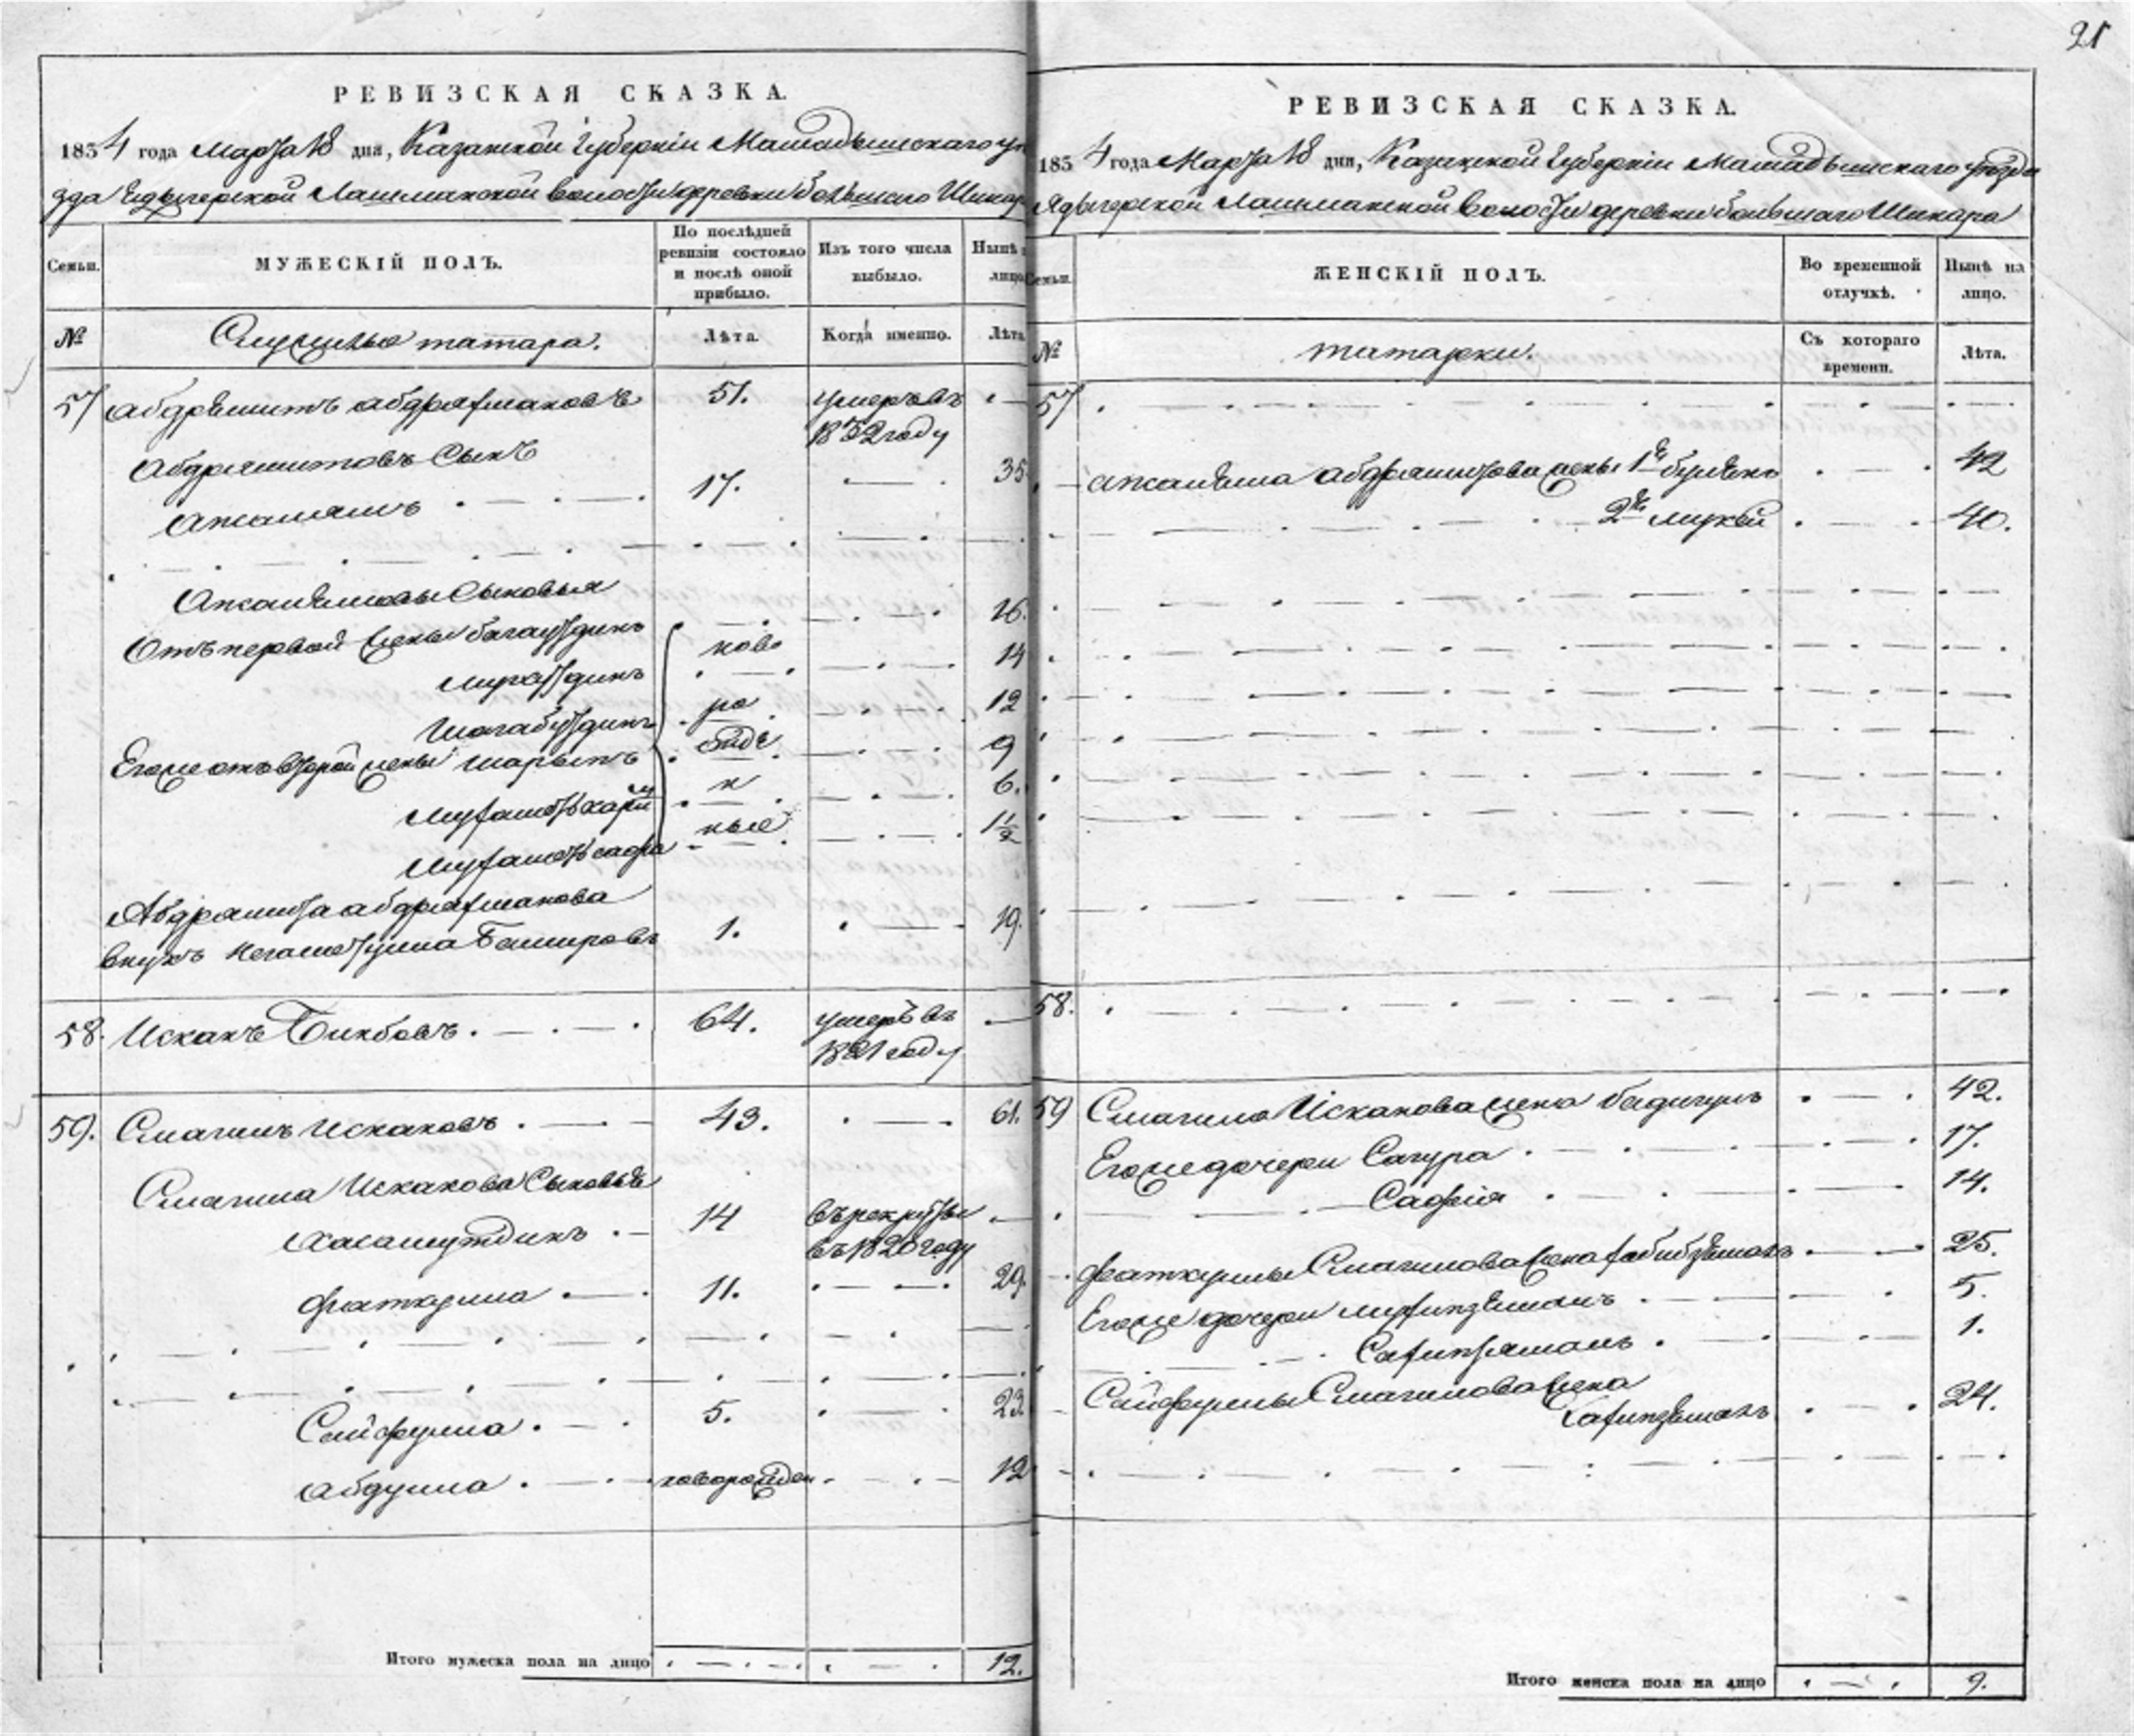 21
РЕВИЗСКАЯ СКАЗКА.
1834 года Марта 18 дня, Казанской Губернiи Мамадышскаго уѣ
зда Ядыгерской Лашманской волости деревни большаго Шинар
Семьи.
МУЖЕСКІЙ ПОЛЪ.
По послѣдней ревизіи состояло и послѣ оной прибыло.
Изъ того числа выбыло.
Нынѣ на лицо
№
Служилые татара.
Лѣта.
Когда именно.
Лѣта
57 абдрѣшитъ абдряхмановъ 51. умеръ въ 1832 году
Абдряшитовъ Сынъ
апсалямъ 17. 35
Апсалѣмовы Сыновья
Отъ первой жены багаутдинъ 16.
нурутдинъ ново 14
шагабутдинъ ро 12
Егоже отъ второй жены шарыпъ жде 9
мухаметькарим н 6.
мухаметьсафа ные 1 1/2
Абдрашита абдряхманова
внукъ негаметулла Башировъ 1. 19.
58. Исканъ Бикбовъ. 64. умеръ въ 1821 году
59. Смагилъ Искаковъ. 43. 61.
Смагила Искакова Сыновья
хасамутдинъ 14 въ рекруты въ 1820 году
фаткулла 11. 29.
Сайфулла. 5. 23.
абдулла. новорожден 12
Итого мужеска пола на лицо 12.
РЕВИЗСКАЯ СКАЗКА.
1834 года Марта 18 дня, Казанской Губернiи Мамадышскаго уѣзда
Ядыгерской Лашманской волости деревни большаго Шинара
Семьи.
ЖЕНСКІЙ ПОЛЪ.
Во временной отлучкѣ.
Нынѣ на лицо.
№
татарки.
Съ котораго времени.
Лѣта.
57
апсалѣма абдрашитова жены 1я 42
2я 40.
58.
59 Смагила Искакова жена бадигулъ 42.
Егоже дочери Сагура 17.
Сафiя 14.
фаткуллы Смагилова жена хабибзѣмалъ 25.
Егоже дочери 5.
1.
Сайфуллы Смагилова жена
24.
Итого женска пола на лицо 9.